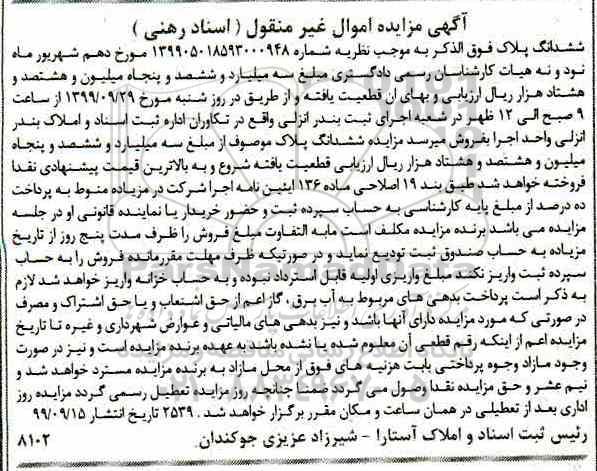 آگهی مزایده اموال غیر منقول ( اسناد رهنی )
ششدانگ پلاک فوق الذکر به موجب نظریه شماره ۱۳۹۹۰۵۰۱۸۵۹۳۰۰۰۹۴۸ مورخ دهم شهریور ماه
نود و نه هیات کارشناسان رسمی دادگستری مبلغ سه میلیارد و ششصد و پنجاه میلیون و هشتصد و
هشتاد هزار ریال ارزیابی و بهای ان قطعیت یافته و از طریق در روز شنبه مورخ ۱۳۹۹/۰۹/۲۹ از ساعت
۹ صبح الی ۱۲ ظهر در شعبه اجرای ثبت بندر انزلی واقع در تکاوران اداره ثبت اسناد و املاک بندر
انزلی واحد اجرا بفروش میرسد مزایده ششدانگ پلاک موصوف از مبلغ سه میلیارد و ششصد و پنجاه
میلیون و هشتصد و هشتاد هزار ریال ارزیابی قطعیت یافته شروع و به بالاترین قیمت پیشنهادی نقدا
فروخته خواهد شد طبق بند ۱۹ اصلاحی ماده ۱۳۶ ایئین نامه اجرا شرکت در مزیاده منوط به پرداخت
ده درصد از مبلغ پایه کارشناسی به حساب سپرده ثبت و حضور خریدار یا نماینده قانونی او در جلسه
مزایده می باشد برنده مزایده مکلف است مابه التفاوت مبلغ فروش را ظرف مدت پنج روز از تاریخ
مزیاده به حساب صندوق ثبت تودیع نماید و در صورتیکه ظرف مهلت مقررمانده فروش را به حساب
سپرده ثبت واریز نکند، مبلغ واریزی اولیه قابل استرداد نبوده و به حساب خزانه واریز خواهد شد لازم
به ذکر است پرداخت بدهی های مربوط به آب برق ، گاز اعم از حق اشتعاب و یا حق اشتراک و مصرف
در صورتی که مورد مزایده دارای آنها باشد و نیز بدهی های مالیاتی و عوارض شهرداری و غیره تا تاریخ
مزایده اعم از اینکه رقم قطعی آن معلوم شده یا نشده باشد به عهده برنده مزایده است و نیز در صورت
وجود مازاد وجوه پرداختی بابت هزنیه های فوق از محل مازاد به برنده مزایده مسترد خواهد شد و
نیم عشر و حق مزایده نقدا وصول می گردد ضمنا چنانچه روز مزایده تعطیل رسمی گردد مزایده روز
اداری بعد از تعطیلی در همان ساعت و مکان مقرر برگزار خواهد شد . ۲۵۳۹ تاریخ انتشار ۹۹/۰۹/۱۵
رئیس ثبت اسناد و املاک آستارا - شیرزاد عزیزی جوکندان. ۸۱۰۲